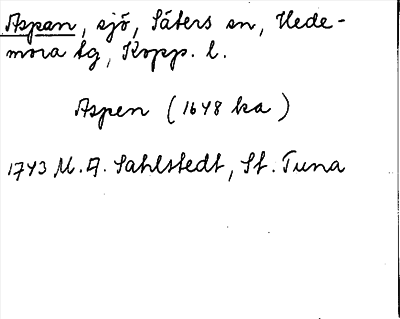 Aspan, sjö, Säters sn, Hede-
mora tg, Kopp. l.
Aspen (1648 ka)
1743 M. A. Sahlstedt, St. Tuna